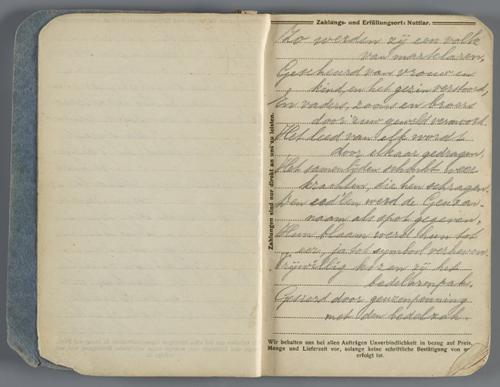 Zahlungs- und Erfüllungsort: Nuttlar.
Zo werden zij een volk
van martelaren,
Gescheurd van vrouw en
kind, en het gezin verstoord,
En vaders, zoons en broers
door ruw geweld vermoord.
Het leed van elk wordt
door elkaar gedragen.
Het samen lijden schenkt weer
krachten, die hen schragen.
Den eed'len werd de Geuzen-
naam als spot gegeven,
Hun blaam werd hun tot
eer, ja tot symbool verheven.
Vrijwillig kozen zij het
bedelaarspak,
Gesierd door geuzenpenning
met den bedelzak.
Zahlungen sind nur direkt an uns zu leisten.
Wir behalten uns bei allen Aufträgen Unverbindlichkeit in bezug auf Preis,
Menge und Lieferzeit vor, solange keine schriftliche Bestätigung von uns
erfolgt ist.